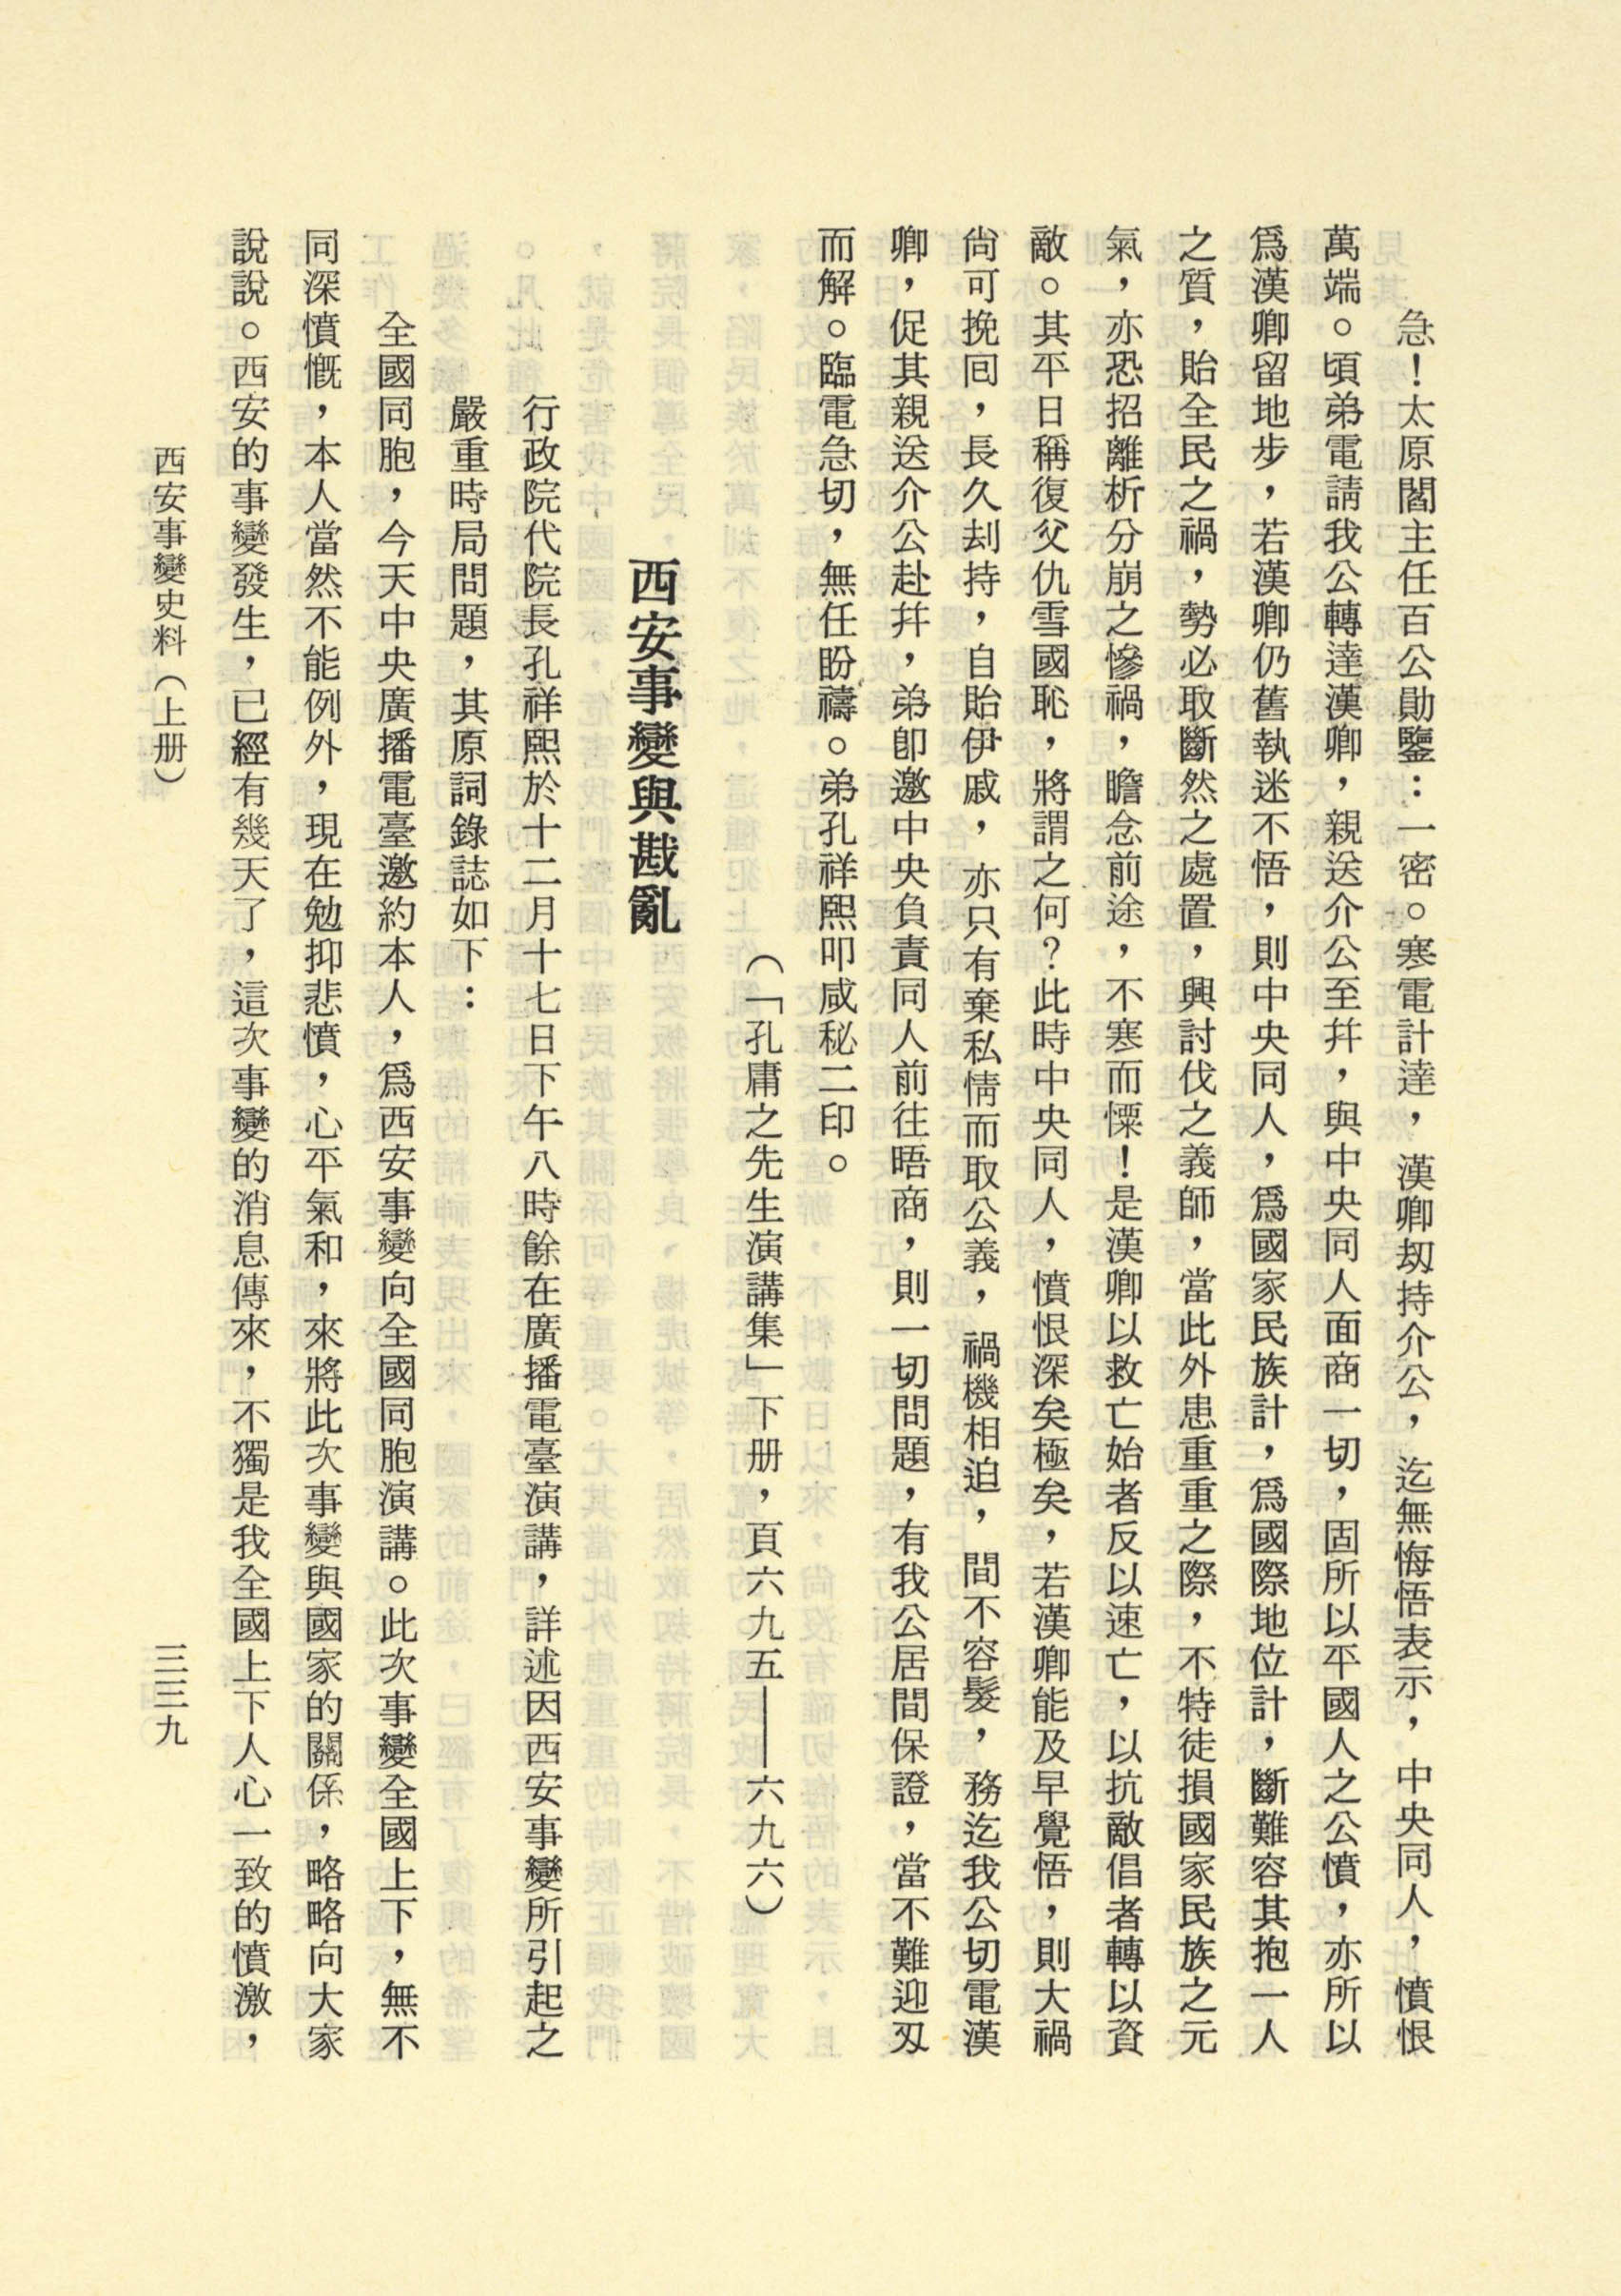 急！太原閻主任百公勛鑒：一密。寒電計達，漢卿刼持介公，迄無悔悟表示，中央同人，憤恨
萬端。頃弟電請我公轉達漢卿，親送介公至幷，與中央同人面商一切，固所以平國人之公憤，亦所以
爲漢卿留地步，若漢卿仍舊執迷不悟，則中央同人，爲國家民族計，爲國際地位計，斷難容其抱一人
之質，貽全民之禍，勢必取斷然之處置，興討伐之義師，當此外患重重之際，不特徒損國家民族之元
氣，亦恐招離析分崩之慘禍，瞻念前途，不寒而慄！是漢卿以救亡始者反以速亡，以抗敵倡者轉以資
敵。其平日稱復父仇雪國恥，將謂之何？此時中央同人，憤恨深矣極矣，若漢卿能及早覺悟，則大禍
尙可挽囘，長久刦持，自貽伊戚，亦只有棄私情而取公義，禍機相迫，間不容髮，務迄我公切電漢
卿，促其親送介公赴幷，弟卽邀中央負責同人前往晤商，則一切問題，有我公居間保證，當不難迎刄
而解。臨電急切，無任盼禱。弟孔祥熙叩咸秘二印。
（「孔庸之先生演講集」下册，頁六九五——六九六）
西安事變與戡亂
行政院代院長孔祥熙於十二月十七日下午八時餘在廣播電臺演講，詳述因西安事變所引起之
嚴重時局問題，其原詞錄誌如下：
全國同胞，今天中央廣播電臺邀約本人，爲西安事變向全國同胞演講。此次事變全國上下，無不
同深憤慨，本人當然不能例外，現在勉抑悲憤，心平氣和，來將此次事變與國家的關係，略略向大家
說說。西安的事變發生，已經有幾天了，這次事變的消息傳來，不獨是我全國上下人心一致的憤激，
西安事變史料（上册）
三三九